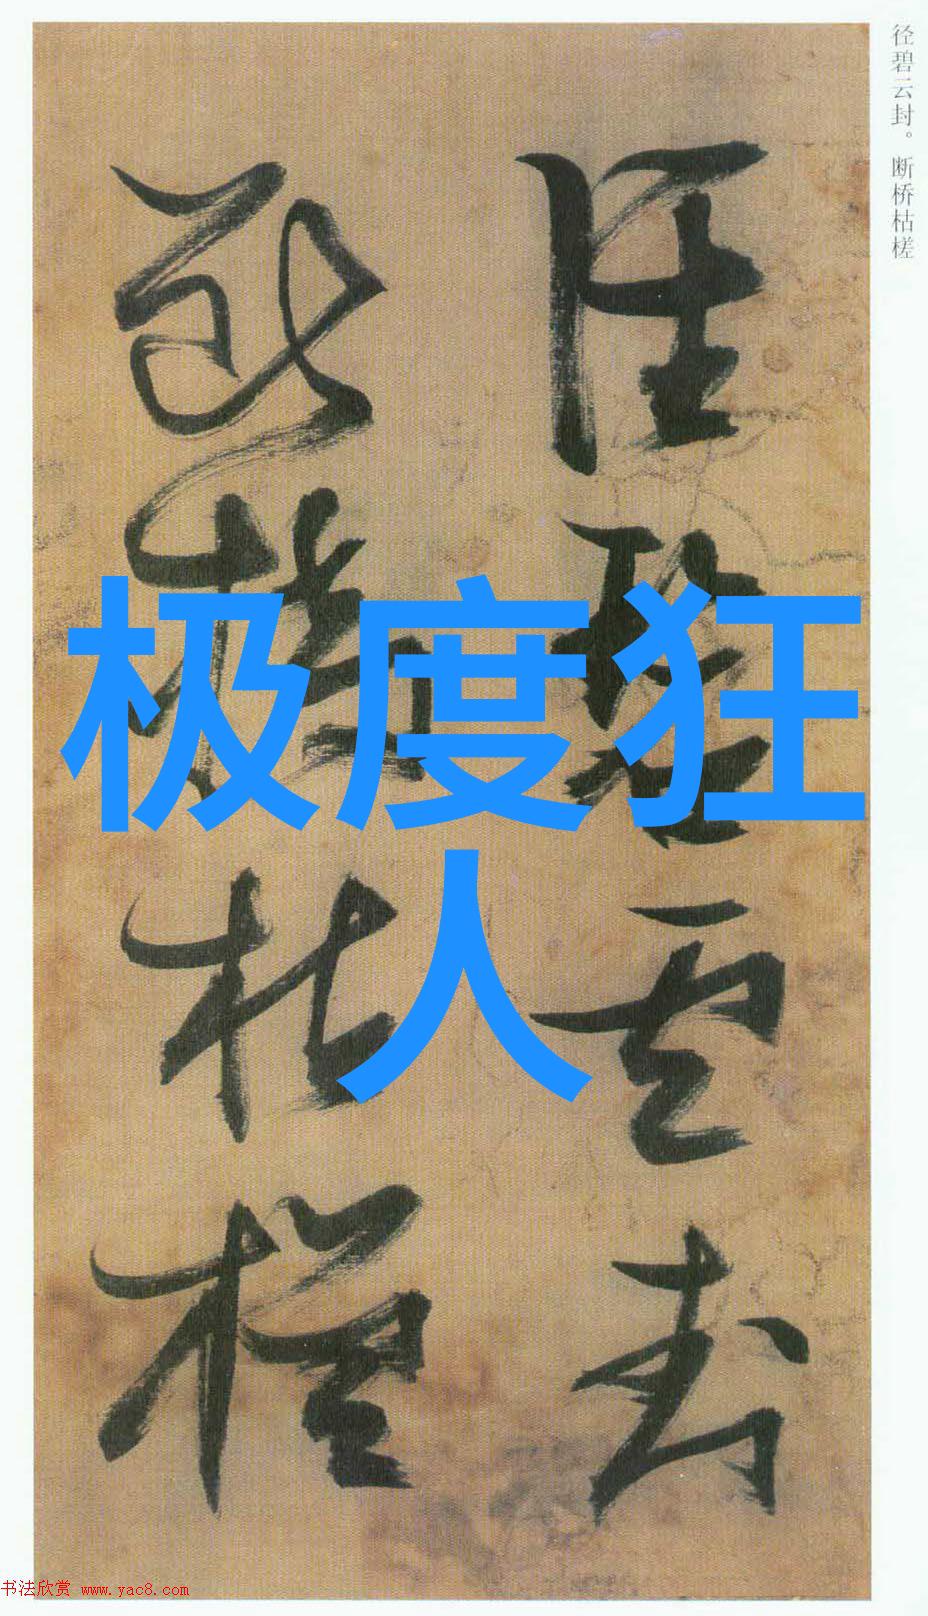 径碧云封。断桥枯槎
径碧云封
断桥枯槎
极度狂
人
书法欣赏 www.yac8.com